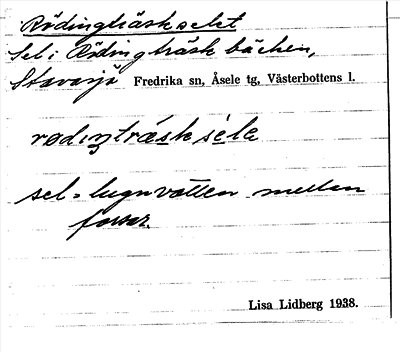 Rödingträskselet
Sel i Rödingträskbäcken,
Fredrika sn, Åsele tg, Västerbottens l.
rødıŋträ́sksèle
sel = lugnvatten mellan
forsar.
Lisa Lidberg 1938.